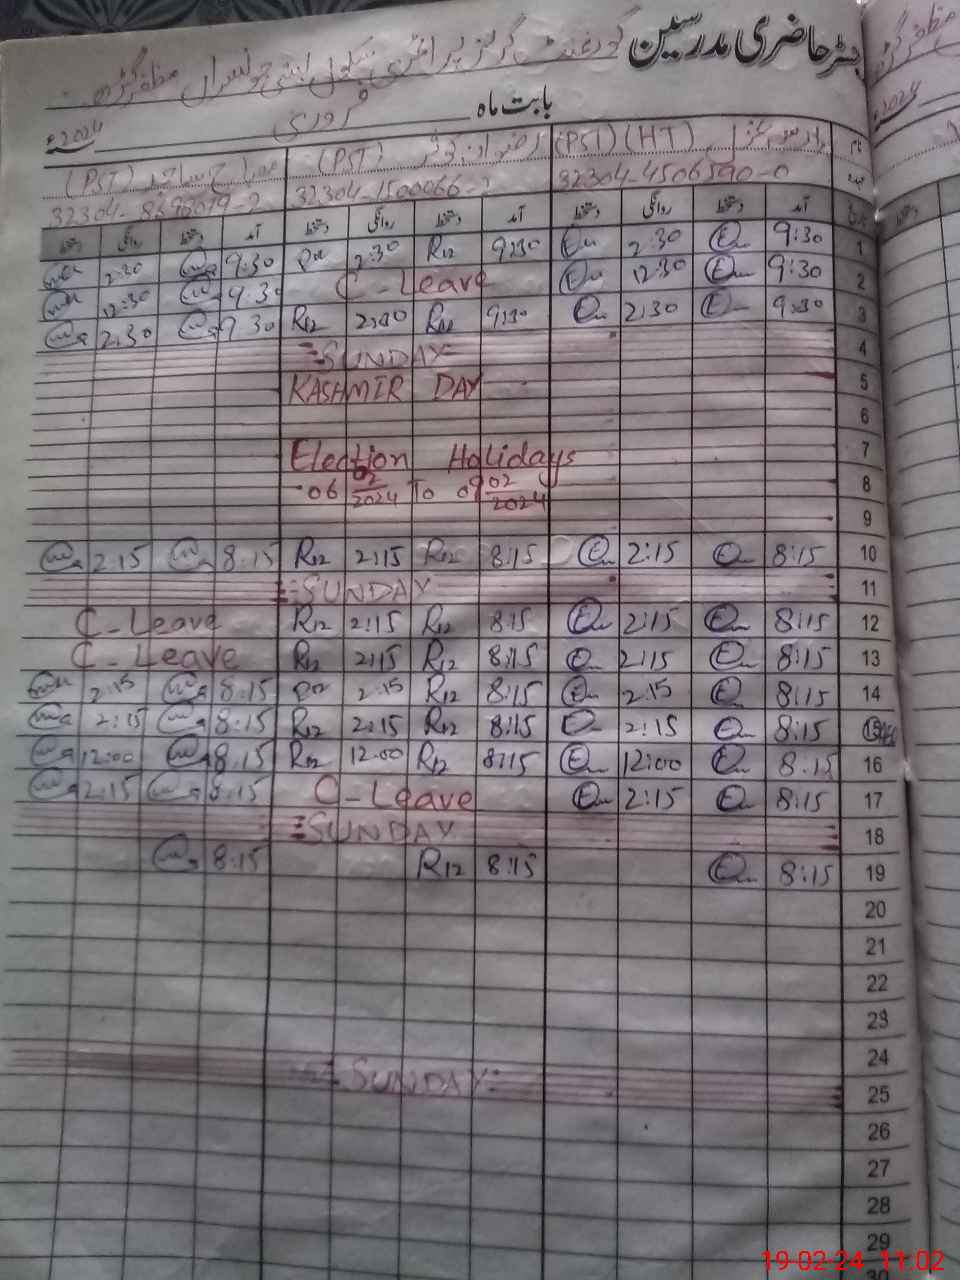 رجسٹر حاضری مدرسین گورنمنٹ گرلز پرائمری سکول بستی مظفر گڑھ
بابت ماہ فروری 2024ء
نام (PST) (HT) (PST) (PST)
32304-4506590-0 32304-1500066- 32304-8698019-2
تاریخ آمد دستخط روانگی دستخط آمد دستخط روانگی دستخط آمد دستخط روانگی دستخط
1 9:30 2:30 9:30 R12 2:30 9:30 2:30
2 9:30 12:30 C-Leave 9:30 12:30
3 9:30 2:30 9:30 2:30 R12 9 30 2:30
4 =SUNDAY=
5 KASHMIR DAY
6
7 Election Holidays
8 06 02/2024 To 09 02/2024
9
10 8:15 2:15 8:15 R12 2:15 R12 8:15 2:15
11 =SUNDAY
12 8:15 2:15 8:15 R12 2:15 R12 C-Leave
13 8:15 2:15 8:15 R12 2:15 R12 C-Leave
14 8:15 2:15 8:15 R12 2:15 R12 8:15 2:15
15 8:15 2:15 8:15 R12 2:15 R12 8:15 2:15
16 8:15 12:00 8:15 R12 12:00 R12 8:15 12:00
17 8:15 2:15 C-Leave 8:15 2:15
18 =SUNDAY
19 8:15 8:15 R12 8:15
20
21
22
23
24
25 =SUNDAY=
26
27
28
29
30
19-02-24 11:02